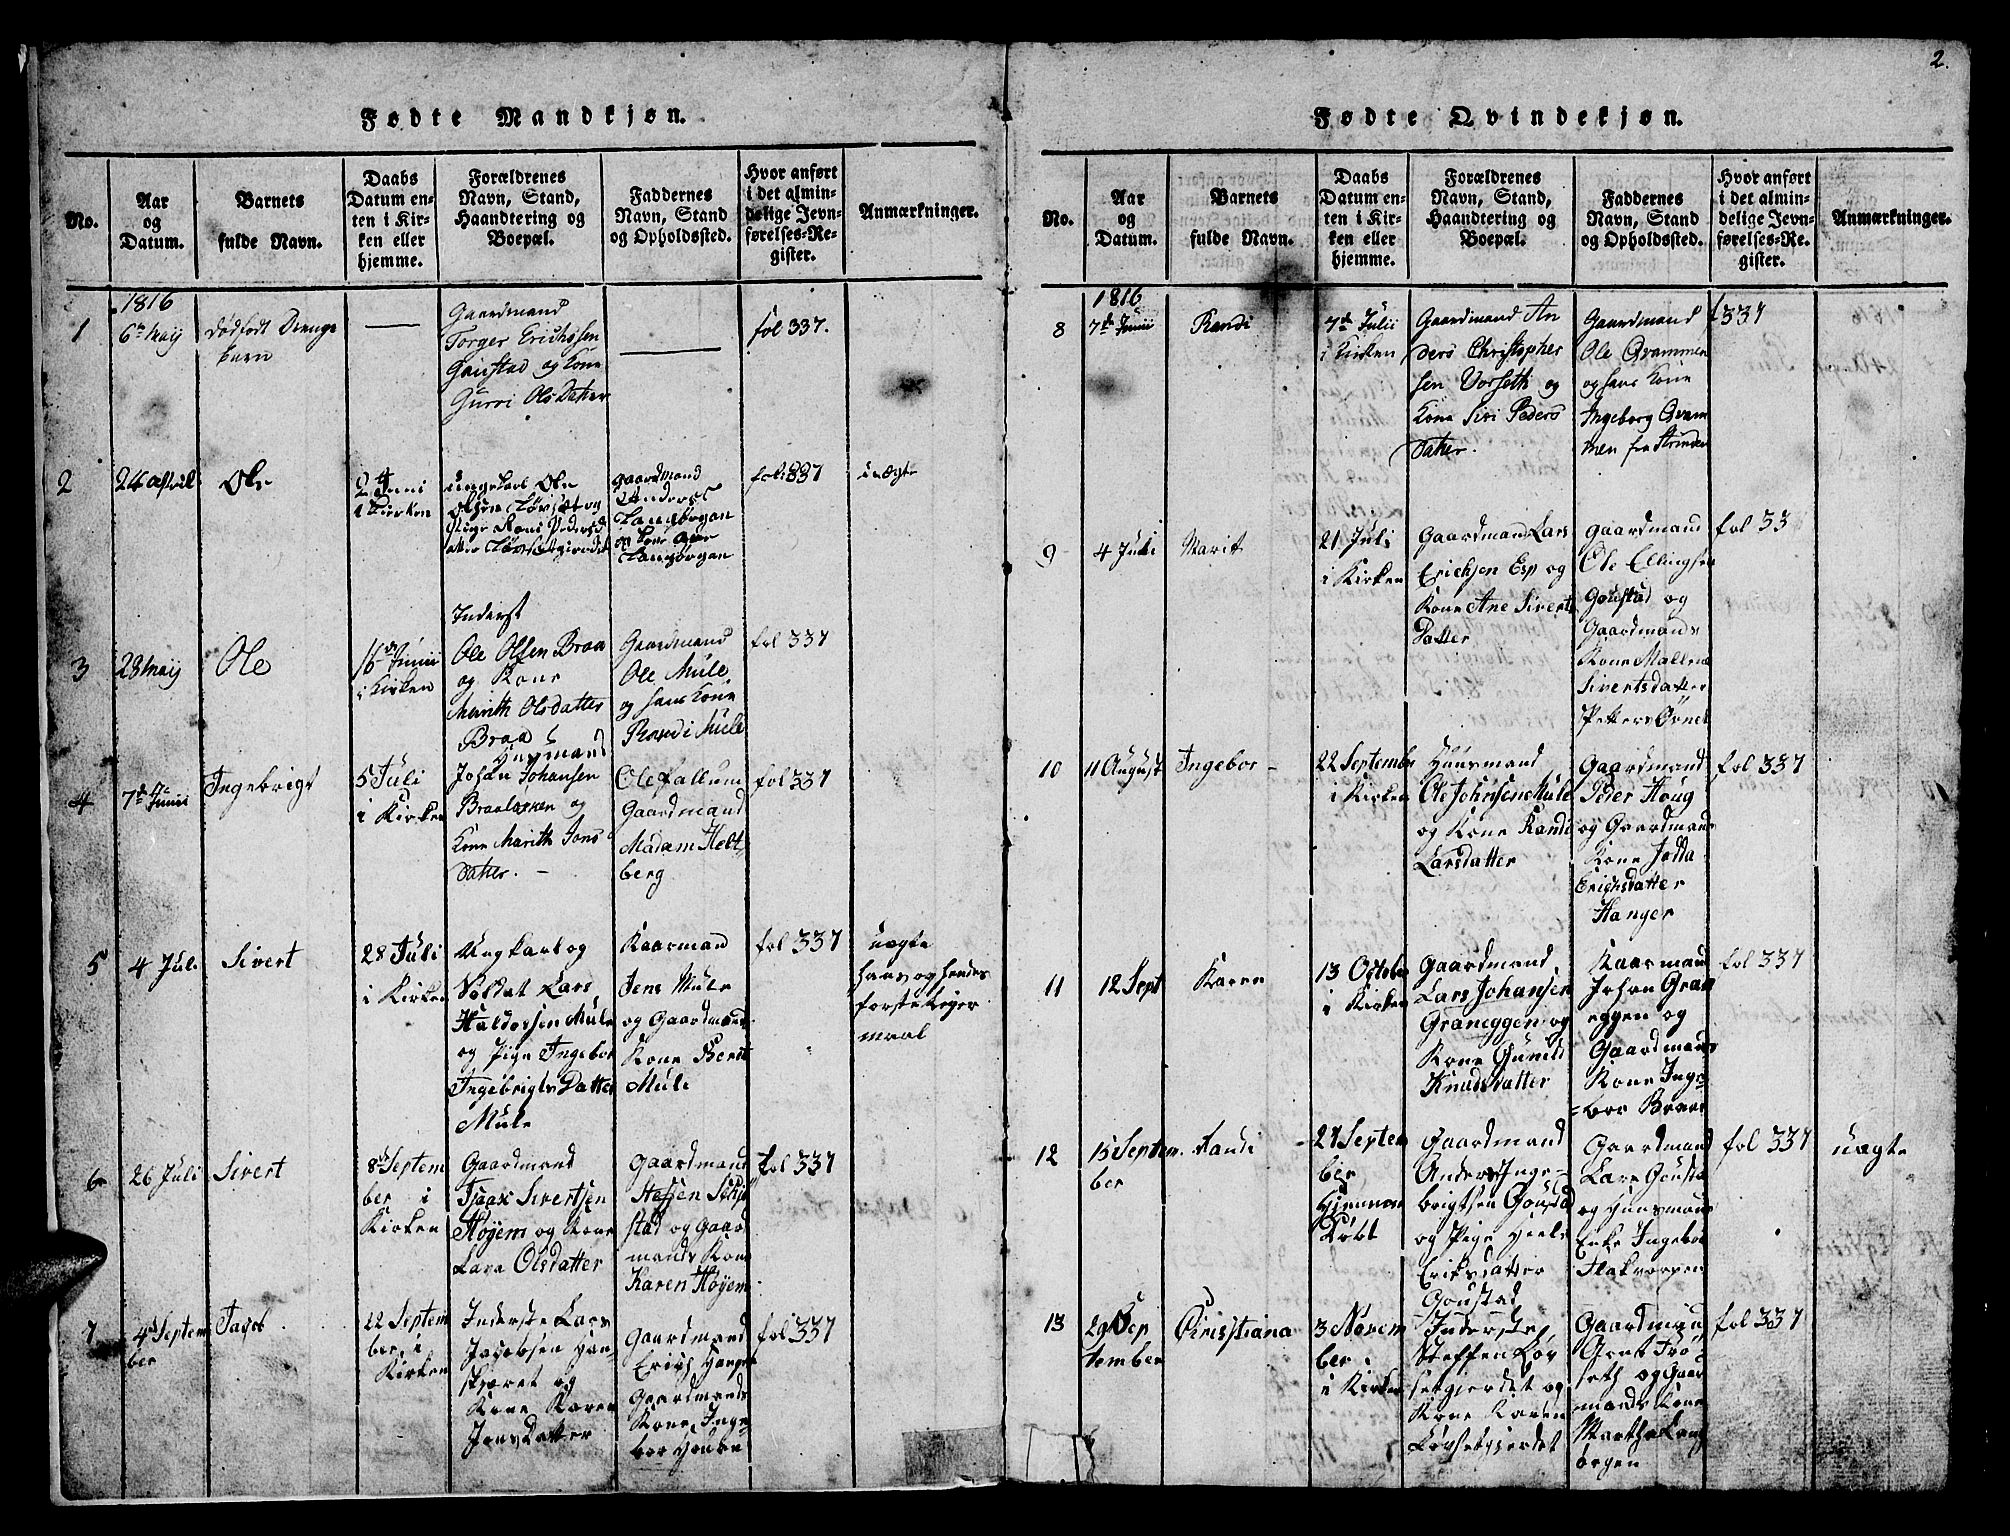 2.
Fødte Mandkjøn.
No.
Aar
og
Datum.
Barnets
fulde Navn.
Daabs
Datum en-
ten i Kir-
ken eller
hjemme.
Forældrenes
Navn, Stand,
Haandtering og
Boepæl.
Faddernes
Navn, Stand
og Opholdssted.
Hvor anført
i det almin-
delige Jevn-
førelses-Re-
gister.
Anmærkninger.
1
1816
6te Maij
dødfødt Drenge
barn
Gaardmand
Torger Erichssen
Goustad og Kone
Gurri Olsdatter
fol 337.
2
24 april
Ole
2 Juni
i Kirken
ungekarl Ole
Olsen Løvset og
Pige Roni Peders d
atter Løvsetgierdet
gaardmand
Anders
Langørgan
og kone
Langørgan
fol 337
uægte
3
28 Maij
Ole
16de Junii
i Kirken
Inderst
Ole Olsen Braa
og Kone
Merith Olsdatter
Braa
Gaardmand
Ole Mule
og hans Kone
Randi Mule
fol 337
4
7de Junii
Ingebrigt
5 Juli
i Kirken
Huusmand
Johan Johansen
Braaløkken og
Kone Marith Jons
Datter. -
Ole Fallum
Gaardmand
Madam Helt
berg
fol 337
5
4 Juli
Sivert
28 Juli
i Kirken
Ungkarl og
Soldat Lars
Haldossen Mule
og Pige Ingebor
Ingebrigts Datter
Mule
Kaarmand
Jens Mule
og Gaardmands
Kone Berit
Mule
fol 337
uægte
hans og hendes
første Lejer
maal
6
26 Juli
Sivert
8de Septem
ber i
Kirken
Gaardmand
Isaax Sivertsen
Høyem og Kone
Lava Olsdatter
Gaardmand
Steffen
stad og Gaar
mands Kone
Karen Høyem
fol 337
7
4de Septem
ber
Jacob
22 Septem
ber i
Kirken
Inderste Lars
Jacobsen Han-
skjæret og
Kone Karen
Jonsdatter
Gaardmand
Erich Hanger
Gaardmands
Kone Inge
bor
fol 337
Fødte Qvindekjøn.
No.
Aar
og
Datum.
Barnets
fulde Navn.
Daabs
Datum en-
ten i Kir-
ken eller
hjemme.
Forældrenes
Navn, Stand,
Haandtering og
Boepæl.
Faddernes
Navn, Stand
og Opholdssted.
Hvor anført
i det almin-
delige Jevn-
førelses-Re-
gister.
Anmærkninger.
8
1816
7de Junii
Randi
7de Julii
i Kirken
Gaardmand An
ders Christopher
sen Vorseth og
Kone Siri Peders
Datter.
Gaardmand
Ole Qvammen
og hans Kone
Ingeborg Qvam
men fra Strinden
f 337
9
4 Juli
Marit
21 Juli
i Kirken
Gaardmand Lars
Erichsen Esp og
Kone Ane Siverts
Datter
Gaardmand
Ole Ellingsen
Goustad og
Gaardmands
Kone Mallena
Sivertsdatter
Petters Ørnet
fol 33
10
11 August
Ingebor -
22 Septembr
i Kirken
Huusmand
Ole Johnsen Mule
og Kone Randi
Larsdatter
Gaardmand
Peder Houg
og Gaardmands
Kone Jodda
Erichsdatter
Hanger
fol 337
11
12 Sept
Karen
13 October
i Kirken
Gaardmand
Lars Johansen
Graneggen og
Kone Gunild
Knudsdatter
Kaarmand
Johan Gran
eggen og
Gaardmands
Kone Inge
bor
fol 337
12
15 Septem
ber
Randi
27 Septem
ber
Hjemme
Døbt
Gaardmand
Anders Inge-
brigtsen Goustad
og Pige
Eriksdatter
Goustad
Gaardmand
Lars Gousta
og Huusmans
Enke Ingebor
Flakvorgen
fol 337
uægte
13
29 Sep
tember
Chrisstiana
3 Novem
ber
i Kirken
Inderste
Steffen Løv
setgjerdet og
Kone Karen
Løvsetgjerdet
Gaardman
seth og Gaar
mands Kone
Martha Lang
ørgen
fol 337